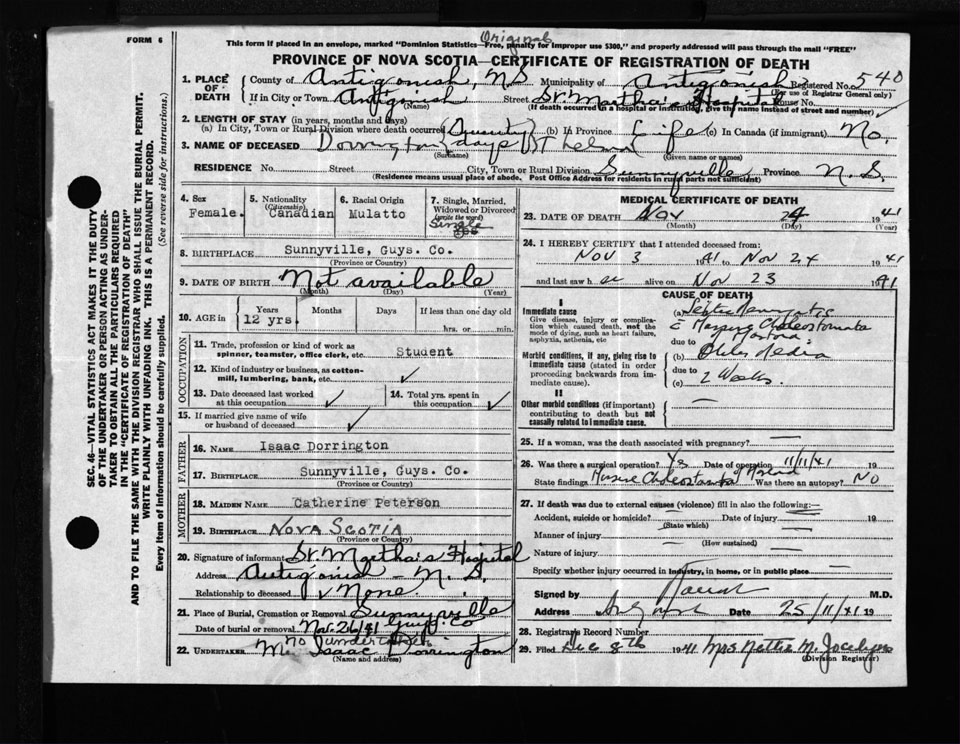 FORM 6
Original
This form if placed in an envelope, marked "Dominion Statistics—Free, penalty for improper use $300," and properly addressed will pass through the mail "FREE"
PROVINCE OF NOVA SCOTIA—CERTIFICATE OF REGISTRATION OF DEATH
SEC. 46—VITAL STATISTICS ACT MAKES IT THE DUTY
OF THE UNDERTAKER OR PERSON ACTING AS UNDER-
TAKER TO OBTAIN ALL THE PARTICULARS REQUIRED
IN THE "CERTIFICATE OF REGISTRATION OF DEATH"
AND TO FILE THE SAME WITH THE DIVISION REGISTRAR WHO SHALL ISSUE THE BURIAL PERMIT.
WRITE PLAINLY WITH UNFADING INK. THIS IS A PERMANENT RECORD.
Every item of information should be carefully supplied. (See reverse side for instructions.)
1. PLACE OF DEATH County of Antigonish, N.S Municipality of Antigonish Registered No. 540
(For use of Registrar General only)
If in City or Town Antigonish Street St. Martha's Hospital House No.
(Name) (If death occurred in a hospital or institution, give the name instead of street and number) ✓
2. LENGTH OF STAY (in years, months and days)
(a) In City, Town or Rural Division where death occurred (Twenty days) (b) In Province Life (c) In Canada (if immigrant) No.
3. NAME OF DECEASED Dorrington Thelma
(Surname) (Given name or names)
RESIDENCE No. Street City, Town or Rural Division Sunnyville Province N.S.
(Residence means usual place of abode. Post Office Address for residents in rural parts not sufficient)
4. Sex Female.
5. Nationality (Citizenship) Canadian
6. Racial Origin Mulatto
7. Single, Married, Widowed or Divorced (write the word) Single
8. BIRTHPLACE Sunnyville, Guys. Co.
(Province or Country)
9. DATE OF BIRTH Not available
(Month) (Day) (Year)
10. AGE in Years Months Days If less than one day old
12 yrs. hrs. or min.
OCCUPATION
11. Trade, profession or kind of work as
spinner, teamster, office clerk, etc. Student
12. Kind of industry or business, as cotton-
mill, lumbering, bank, etc. ✓
13. Date deceased last worked
at this occupation ✓
14. Total yrs. spent in
this occupation ✓
15. If married give name of wife
or husband of deceased ✓
FATHER
16. NAME Isaac Dorrington
17. BIRTHPLACE Sunnyville, Guys. Co.
(Province or Country)
MOTHER
18. MAIDEN NAME Catherine Peterson
19. BIRTHPLACE NOVA SCOTIA
(Province or Country)
20. Signature of informant St. Martha's Hospital
Address Antigonish - N.S.
Relationship to deceased None.
21. Place of Burial, Cremation or Removal Sunnyville
Date of burial or removal Nov. 26/41 Guys. Co
No undertaker
22. UNDERTAKER Mr. Isaac Dorrington
(Name and address)
MEDICAL CERTIFICATE OF DEATH
23. DATE OF DEATH Nov 24 1941
(Month) (Day) (Year)
24. I HEREBY CERTIFY that I attended deceased from:
Nov 3 1941 to Nov 24 1941
and last saw h er alive on Nov 23 1941
CAUSE OF DEATH
I
Immediate cause
Give disease, injury or complica-
tion which caused death, not the
mode of dying, such as heart failure,
asphyxia, asthenia, etc
(a)
due to
Morbid conditions, if any, giving rise to
immediate cause (stated in order
proceeding backwards from im-
mediate cause).
(b) Otitis Media
due to
(c) 2 Weeks.
II
Other morbid conditions (if important)
contributing to death but not
causally related to immediate cause.
25. If a woman, was the death associated with pregnancy?
26. Was there a surgical operation? Yes Date of operation 11/11/41 19
State findings Massive Mastoid Was there an autopsy? No
27. If death was due to external causes (violence) fill in also the following:
Accident, suicide or homicide? Date of injury 19
(State which)
Manner of injury
(How sustained)
Nature of injury
Specify whether injury occurred in industry, in home, or in public place
Signed by M.D.
Address Antigonish Date 25/11/41 19
28. Registrar's Record Number
29. Filed Dec 8th 1941 Mrs Nettie M.
(Division Registrar)